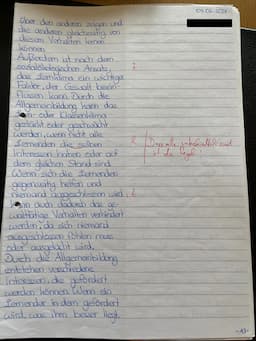 09.06.2021
über den anderen zeigen und
die anderen gleichzeitig von
diesem Verhalten lernen
können.
Außerdem ist nach dem
sozialökologischen Ansatz,
das Lernklima ein wichtiger
Faktor, der Gewalt beein-
flussen kann. Durch die
Allgemeinbildung kann das
oder Klassenklima
gestärkt oder geschwächt
werden, wenn nicht alle
Lernenden die selben
Interessen haben oder auf
dem gleichen Stand sind.
Wenn sich die Lernenden
gegenseitig helfen und
niemand ausgeschlossen wird,
kann auch dadurch das ge-
walttätige Verhalten verhindert
werden, da sich niemand
ausgeschlossen fühlen muss
oder ausgelacht wird.
Durch die Allgemeinbildung
entstehen verschiedene
Interessen, die gefördert
werden können. Wenn ein
Lernender in dem gefördert
wird, was ihm besser liegt,
ist die Regel!